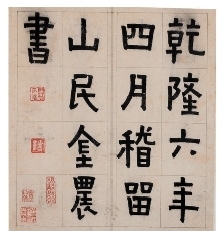 乾隆六年
四月稽留
山民金農
書